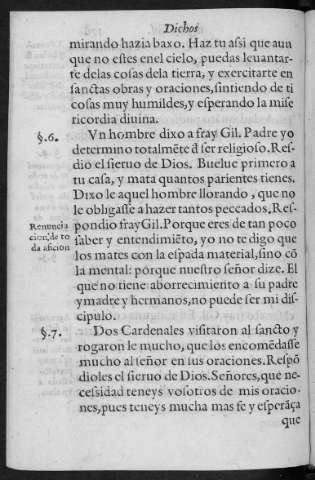 Dichos
mirando hazia baxo. Haz tu assi que aun
que no estes enel cielo, puedas leuantar-
te delas cosas dela tierra, y exercitarte en
sanctas obras y oraciones, sintiendo de ti
cosas muy humildes, y esperando la mise
ricordia diuina.
§.6. Vn hombre dixo a fray Gil. Padre yo
determino totalmẽte d̃ ser religioso. Res-
dio el sieruo de Dios. Buelue primero a
tu casa, y mata quantos parientes tienes.
Dixo le aquel hombre llorando, que no
le obligasse a hazer tantos peccados. Res-
Renuncia pondio fray Gil. Porque eres de tan poco
cion, de to saber y entendimiẽto, yo no te digo que
da aficion los mates con la espada material, sino cõ
la mental: porque nuestro señor dize. El
que no tiene aborrecimiento a su padre
y madre y hermanos, no puede ser mi dis-
cipulo.
§.7. Dos Cardenales visitaron al sancto y
rogaron le mucho, que los encomẽdasse
mucho al señor en sus oraciones. Respõ
dioles el sieruo de Dios. Señores, que ne-
cessidad teneys vosotros de mis oracio-
nes, pues teneys mucha mas fe y esperãça
que